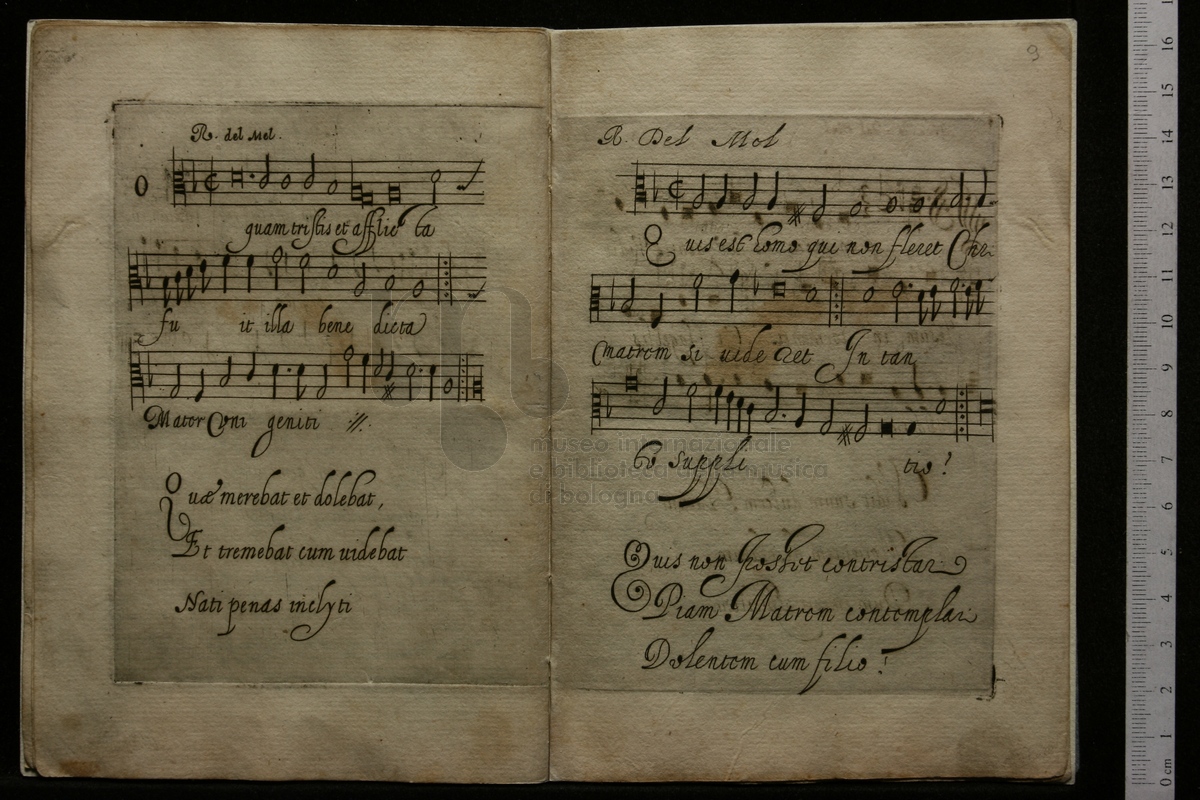 R. del Mel.
O
quam tristis et afflic ta
fu it illa bene dicta
Mater Uni geniti :/:.
Quæ merebat et dolebat,
Et tremebat cum uidebat
Nati penas inclyti
9
R. Del Mel
Quis est homo qui non fleret Chri
matrem si uide ret In tan
to suppli tio?
Quis non posset contristari
Piam Matrem contemplari
Dolentem cum filio?
museo internazionale
e biblioteca della musica
di bologna
0 cm 1 2 3 4 5 6 7 8 9 10 11 12 13 14 15 16